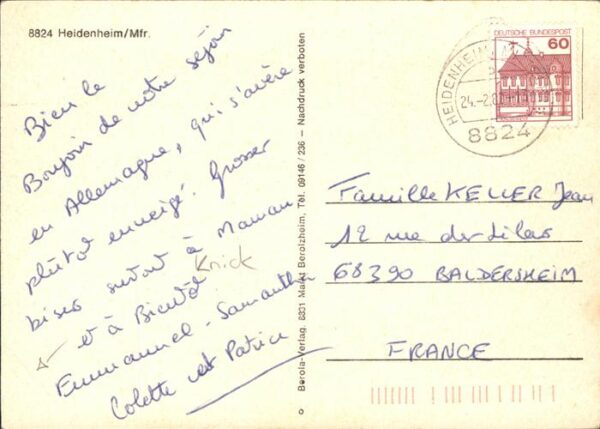 8824 Heidenheim/Mfr.
Bien le
Bonjour de notre séjour
en Allemagne, qui s'avère
plutôt enneigé. Grosser
bises surtout à Maman
et à Bientôt
Knick
Emmanuel - Samantha
Colette et Patrice
Berola-Verlag, 8831 Markt Berolzheim, Tel. 09146 / 236 — Nachdruck verboten
DEUTSCHE BUNDESPOST
60
HEIDENHEIM
24.-2.8
8824
Famille KELLER Jean
12 rue des Lilas
68390 BALDERSHEIM
FRANCE